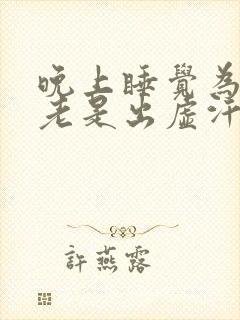 晚上睡覺為
老是出虛汗
許燕露